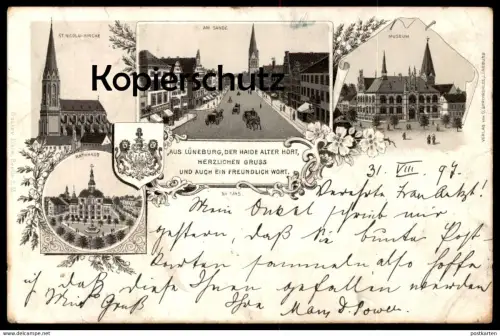 ST. NICOLAI-KIRCHE
AM SANDE
MUSEUM
Kopierschutz
RATHHAUS
AUS LÜNEBURG, DER HAIDE ALTER HORT,
HERZLICHEN GRUSS
UND AUCH EIN FREUNDLICH WORT.
31. VIII. 97.
Verehrte Frau
Mein Onkel schrieb mir
gestern, daß Sie bunte Post-
karten sammeln also hoffe
ich daß diese Ihnen gefallen werden
Gruß Ihre Mary D. Power
postkarten